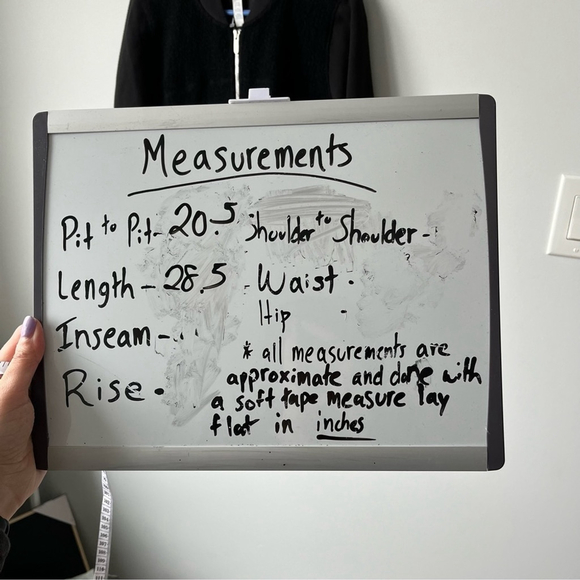 Measurements
Pit to Pit- 20.5 Shoulder to Shoulder -
Length - 28.5 - Waist -
Hip -
Inseam -
* all measurements are
Rise - approximate and done with
a soft tape measure lay
flat in inches